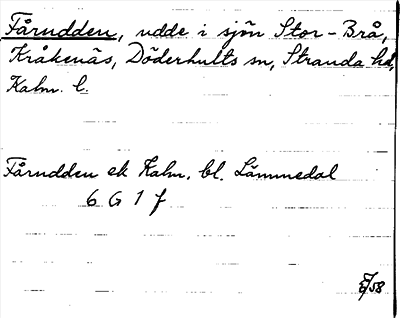 Fårudden, udde i sjön Stor-Brå,
Kråkenäs, Döderhults sn, Stranda hd,
Kalm. l.
Fårudden ek Kalm. bl. Lämmedal
6 G 1 f
58